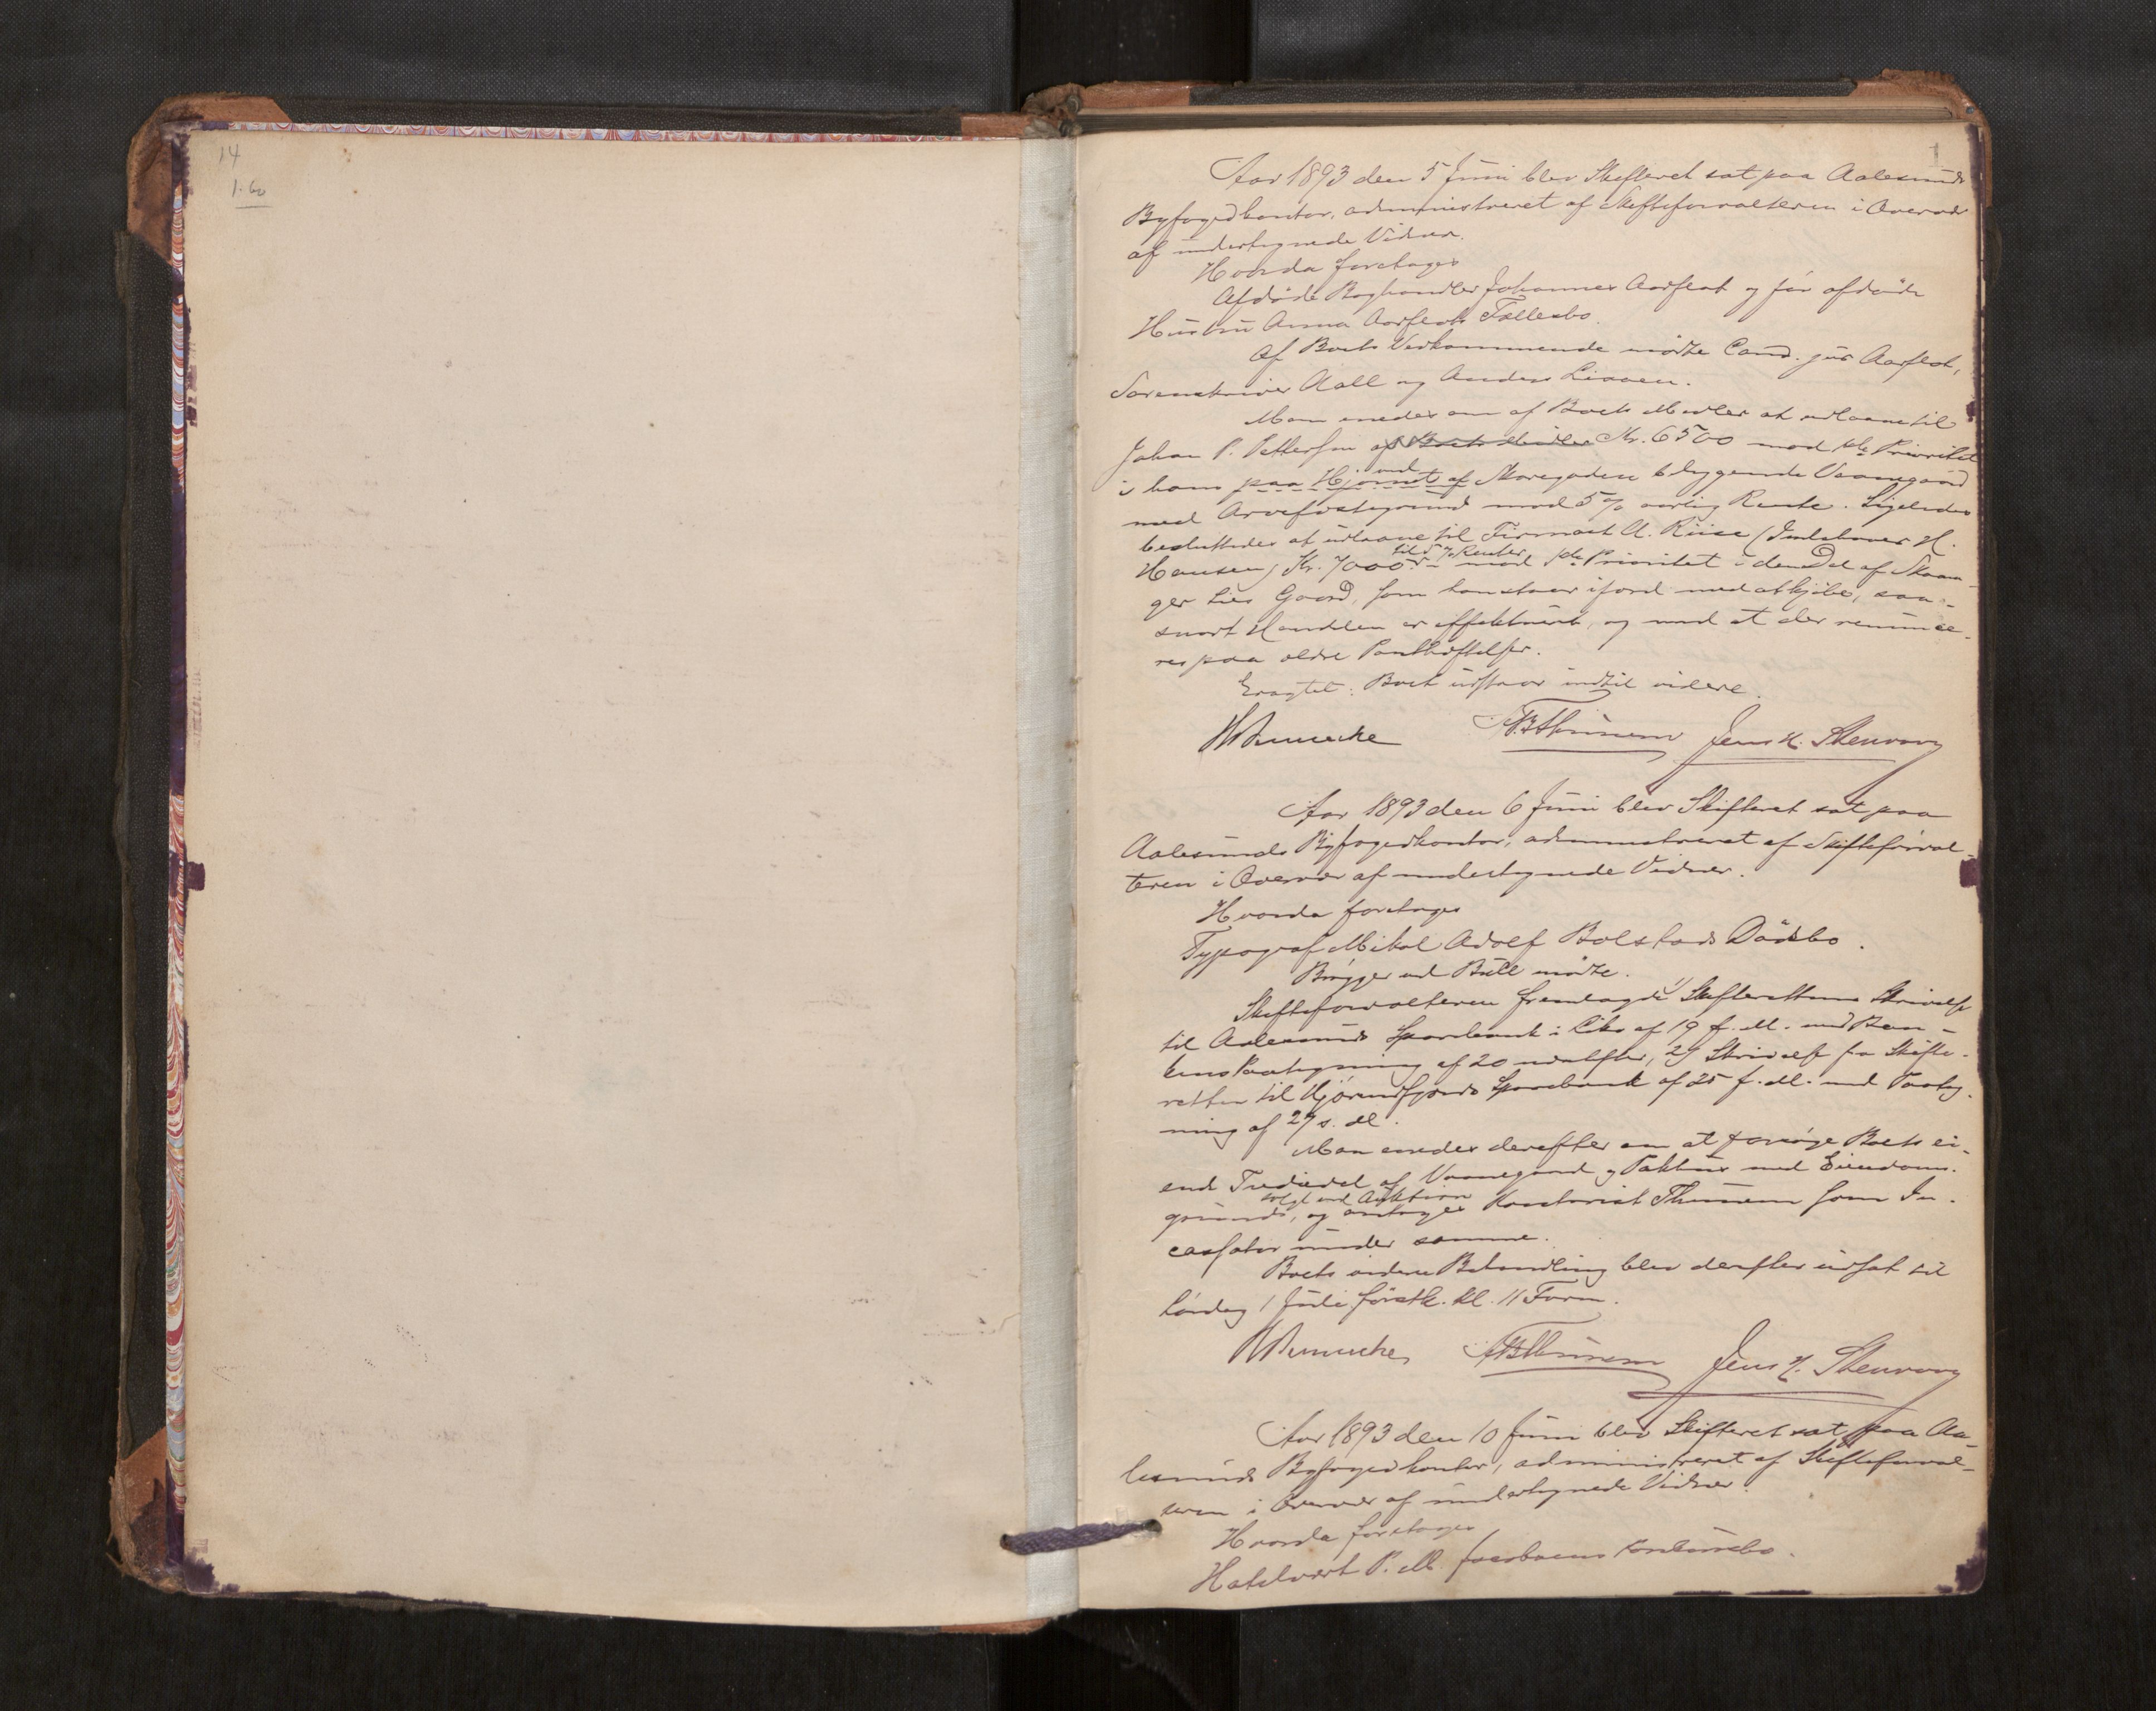 14
1.60
1
Aar 1893 den 5 Juni blev Skifteret sat paa Aalesunds
Byfogedkontor, administreret af Skifteforvalteren i Overvær
af undertegnede Vidner.
Hvorda foretoges
Afdøde Boghandler Johannes Aarflot og før afdøde
Hustru Anna Aarflots Fællesbo.
Af Boets Vedkommende mødte Cand. jur Aarflot,
Sorenskriver Aall og Anders Lisaen.
Man enedes om af Boets Midler at udlaane til
Johan P. Pettersen af Boets Midler Kr. 6500 mod 1ste Prioritet
i hans paa Hjørnet af ved Storegaden beliggende Vaanegaard
med Arvefæstegrund mod 5% aarlig Rente. Ligeledes
besluttedes at udlaane til Firmaet A. Riise (Indehaver H.
Hansen) Kr. 7000 til 5% Renter mod 1ste Prioritet i den Del af
ger Lies Gaard, som han staar i færd med at kjøbe, saa-
snart Handelen er effektueret, og mod at der renunce-
res paa ældre Panthæftelser.
Eragtet: Boet udstaar indtil videre.
A.B. Thunem Jens H. Stenvaag
Aar 1893 den 6 Juni blev Skifteret sat paa
Aalesunds Byfogedkontor, administreret af Skifteforval-
teren i Overvær af undertegnede Vidner.
Hvorda foretoges
Typograf Mikal Adolf Bolstads Dødsbo.
Brygger ved Bull mødte.
Skifteforvalteren fremlagde 1) Skifterettens Skrivelse
til Aalesunds Sparebank i Likv af 19 f. M. med Ban-
kens Paategning af 20 næstefter, 2) Skrivelse fra Skifte-
retten til Hjørundfjords Sparebank af 25 f. M. med Paateg-
ning af 27 s. M.
Man enedes derefter om at forsøge Boets ei-
ende Trediedel af Vaanegaard og Pakhus med Eiendoms-
grund, solgt ved Auktion og antages Kontorist Thunem som In-
cassator under samme.
Boets videre Behandling blev derefter udsat til
Lørdag 1 Juli førstk. kl. 11 Form.
A.B. Thunem Jens H. Stenvaag
Aar 1893 den 10 Juni blev Skifteret sat paa Aa-
lesunds Byfogedkontor, administreret af Skifteforval-
teren i Overvær af undertegnede Vidner.
Hvorda foretoges
Hotelvert P. M. Jacobsens Konkursbo.